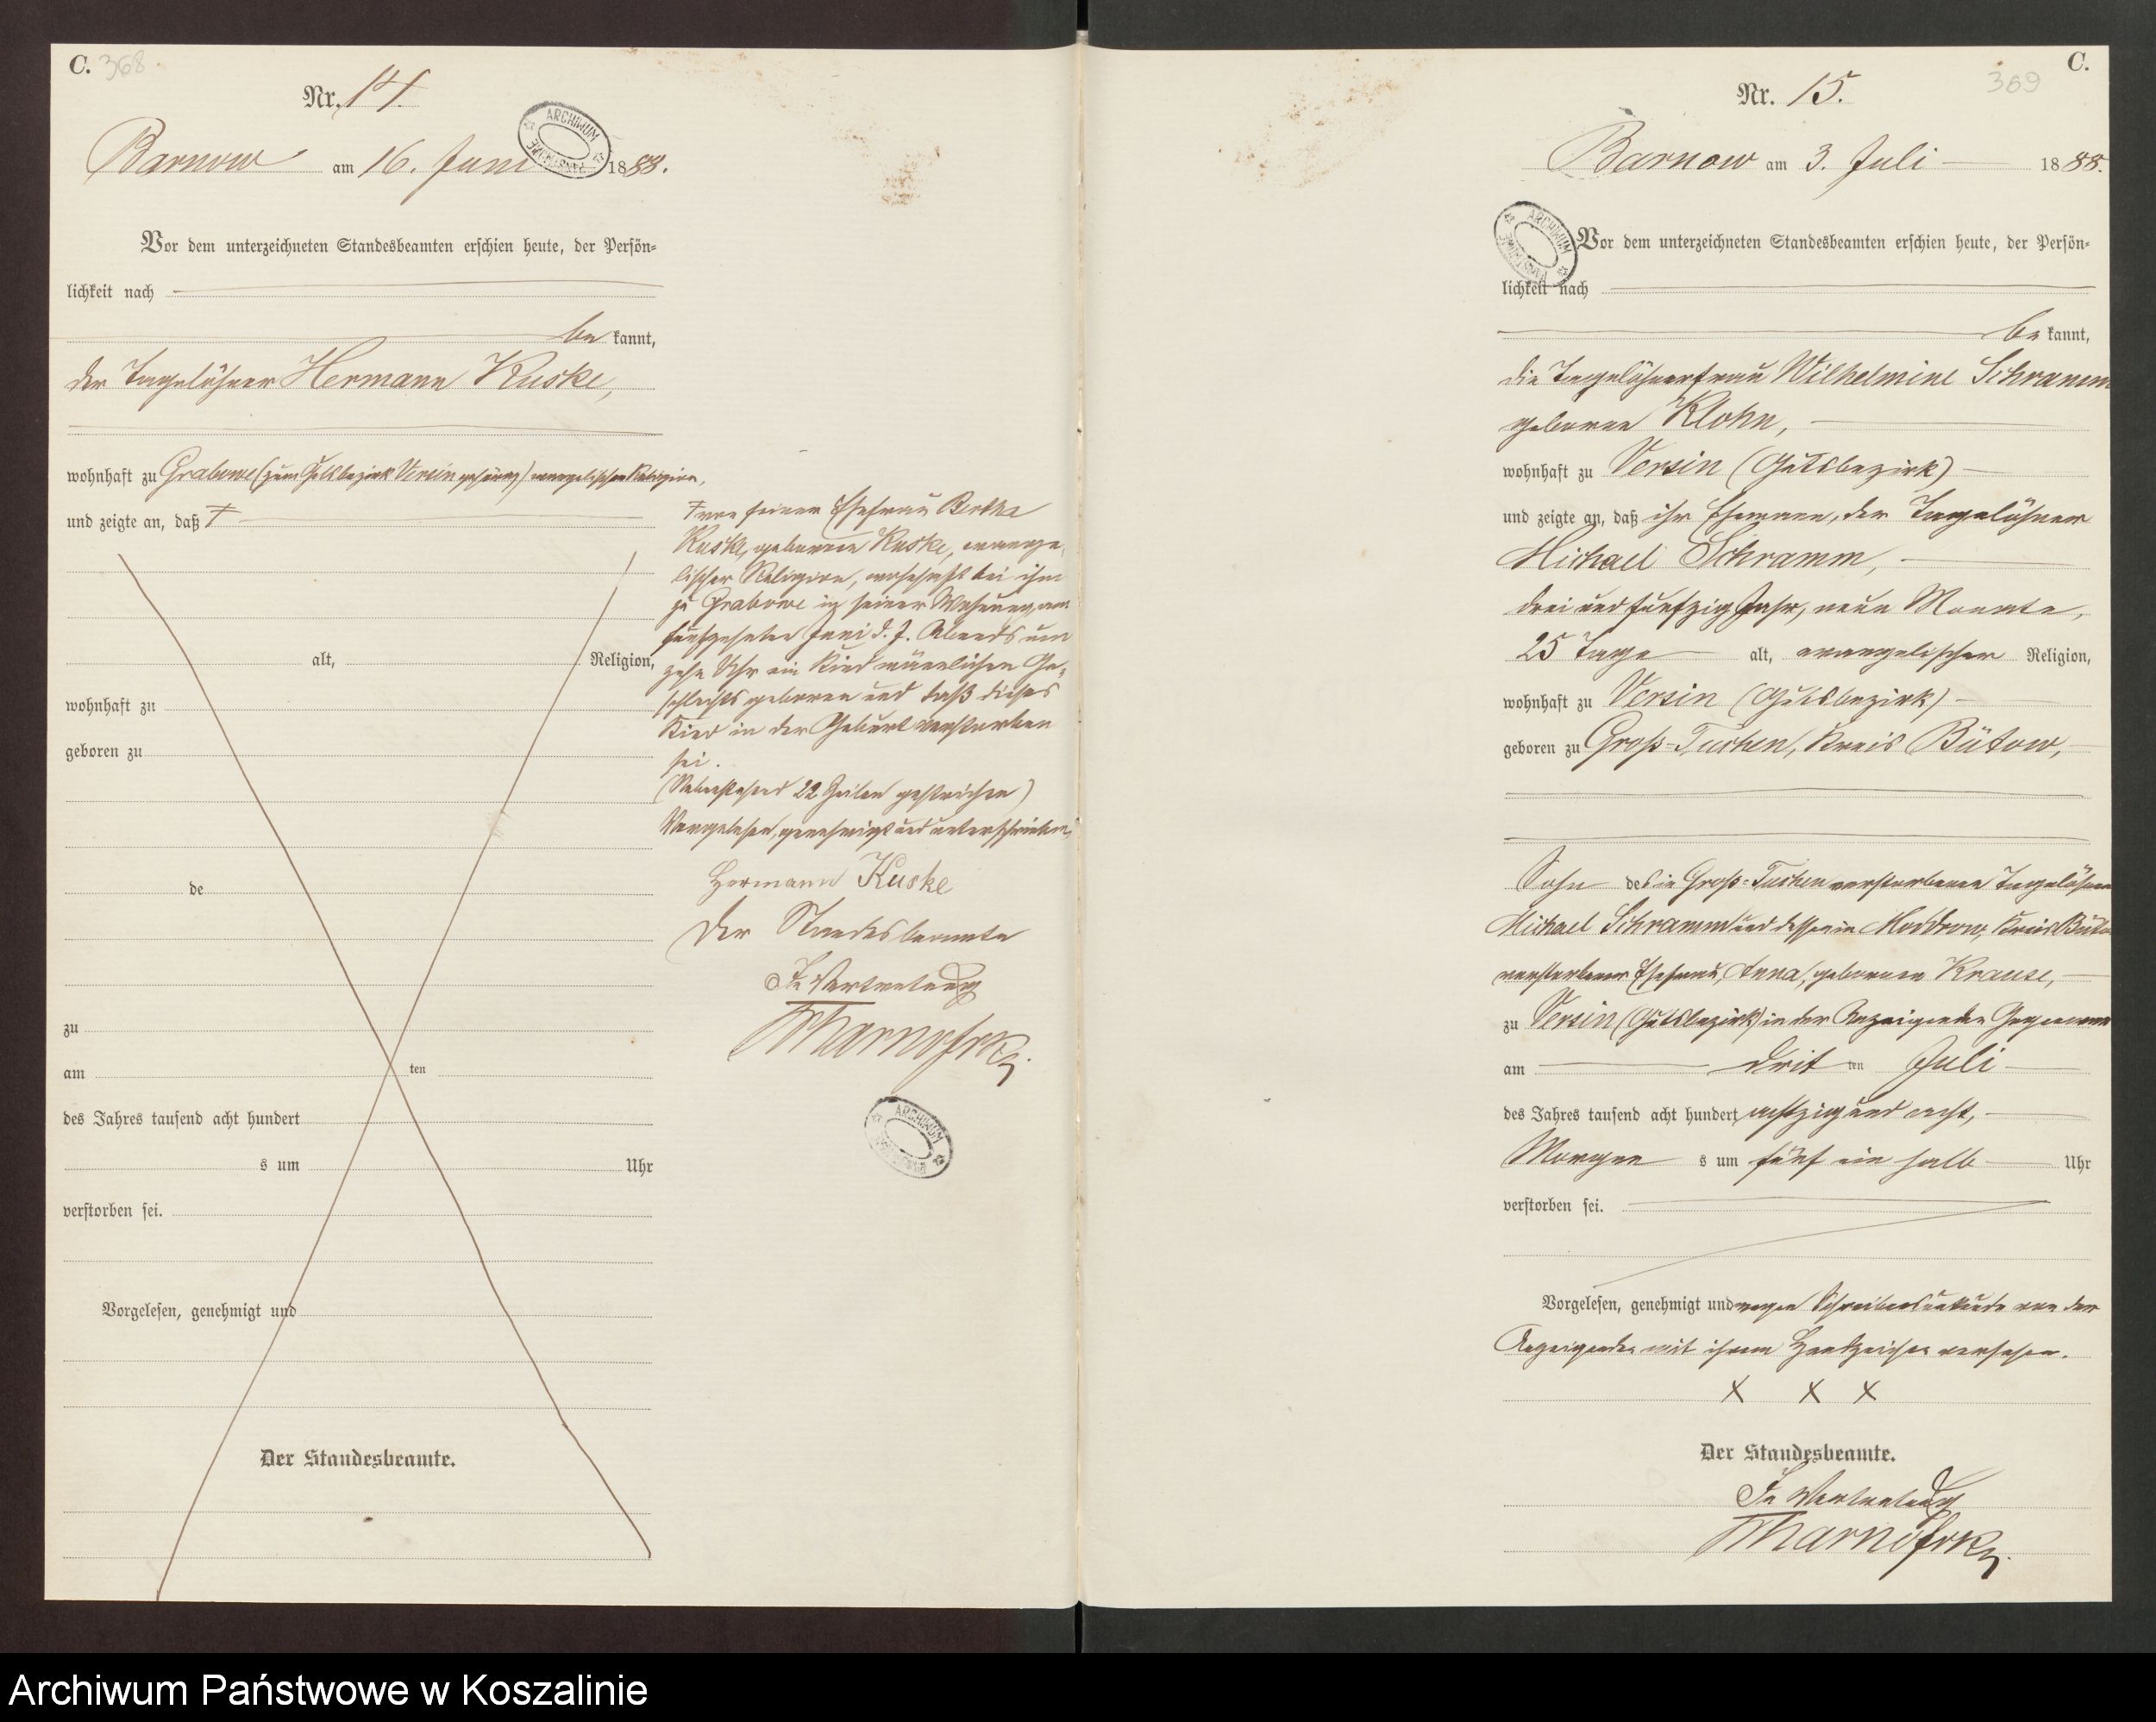 C. 368.
Nr. 14.
Barnow am 16. Juni 1888.
Vor dem unterzeichneten Standesbeamten erschien heute, der Persön-
lichkeit nach
be kannt,
der Tagelöhner Hermann Kuske,
wohnhaft zu Grabowe (zum Gutsbezirk Versin gehörig) evangelischer Religion,
und zeigte an, daß
alt, Religion,
wohnhaft zu
geboren zu
de
zu
am ten
des Jahres tausend acht hundert
s um Uhr
verstorben sei.
Vorgelesen, genehmigt und
Der Standesbeamte.
von seiner Ehefrau Bertha
Kuske, geborene Kuske, evange-
lischer Religion, wohnhaft bei ihm
zu Grabowe in seiner Wohnung am
fünfzehnten Juni d. J. Abends um
zehn Uhr ein Kind männlichen Ge-
schlechts geboren und daß dieses
Kind in der Geburt verstorben
sei.
(Nebenstehend 22 Zeilen gestrichen)
Vorgelesen, genehmigt und unterschrieben,
Hermann Kuske
Der Standesbeamte
In Vertretung
ARCHIWUM
C.
369
Nr. 15.
Barnow am 3. Juli 1888.
ARCHIWUM
Vor dem unterzeichneten Standesbeamten erschien heute, der Persön-
lichkeit nach
be kannt,
die Tagelöhnerfrau Wilhelmine Schramm
geborene Klohn,
wohnhaft zu Versin (Gutsbezirk)
und zeigte an, daß ihr Ehemann, der Tagelöhner
Michael Schramm,
drei und fünfzig Jahr, neun Monate,
25 Tage alt, evangelischer Religion,
wohnhaft zu Versin (Gutsbezirk)
geboren zu Groß-Tuchen, Kreis Bütow,
Sohn des in Groß-Tuchen verstorbenen Tagelöhners
Michael Schramm und dessen in Moddrow, Kreis Bütow
verstorbener Ehefrau, Anna, geborenen Krause,
zu Versin (Gutsbezirk) in der Anzeigenden Gegenwart
am drit ten Juli
des Jahres tausend acht hundert achtzig und acht,
Morgen s um fünf ein halb Uhr
verstorben sei.
Vorgelesen, genehmigt und wegen Schreibensunkunde von der
Anzeigenden mit ihrem Handzeichen versehen.
X X X
Der Standesbeamte.
In Vertretung
Archiwum Państwowe w Koszalinie